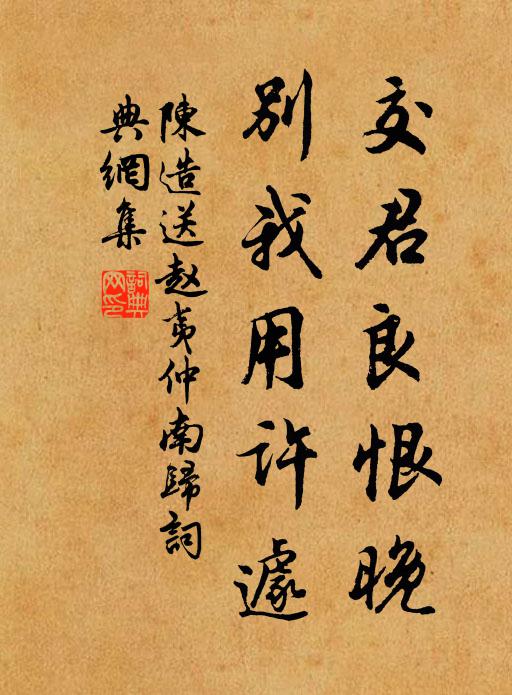 交君良恨晚
別我用許遽
陳造送赵夷仲南歸詞
典網集
詞典网印